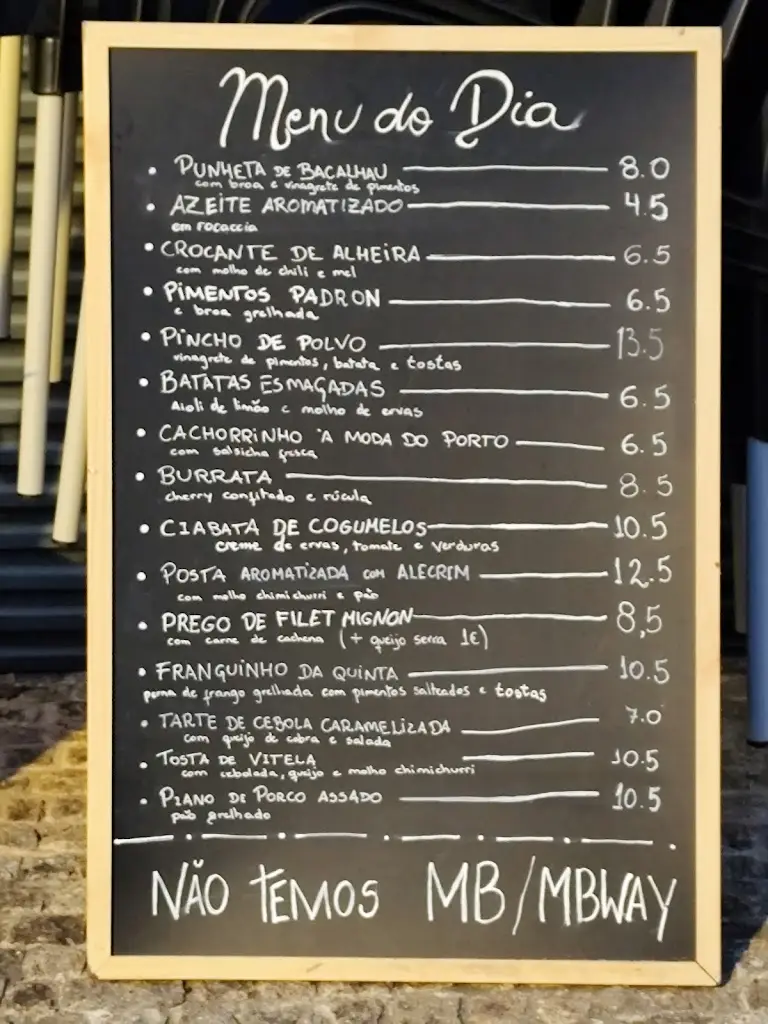 Menu do Dia
• PUNHETA DE BACALHAU 8.0
com broa e vinagrete de pimentos
• AZEITE AROMATIZADO 4.5
em focaccia
• CROCANTE DE ALHEIRA 6.5
com molho de chili e mel
• PIMENTOS PADRON 6.5
e broa grelhada
• PINCHO DE POLVO 13.5
vinagrete de pimentos, batata e tostas
• BATATAS ESMAGADAS 6.5
Aioli de limão e molho de ervas
• CACHORRINHO À MODA DO PORTO 6.5
com salsicha fresca
• BURRATA 8.5
cherry confitado e rúcula
• CIABATA DE COGUMELOS 10.5
creme de ervas, tomate e verduras
• POSTA AROMATIZADA com ALECRIM 12.5
com molho chimichurri e pão
• PREGO DE FILET MIGNON 8,5
com carne de cachena (+ queijo serra 1€)
• FRANGUINHO DA QUINTA 10.5
perna de frango grelhada com pimentos salteados e tostas
• TARTE DE CEBOLA CARAMELIZADA 7.0
com queijo de cabra e salada
• TOSTA DE VITELA 10.5
com cebolada, queijo e molho chimichurri
• PIANO DE PORCO ASSADO 10.5
pão grelhado
NÃO TEMOS MB/MBWAY